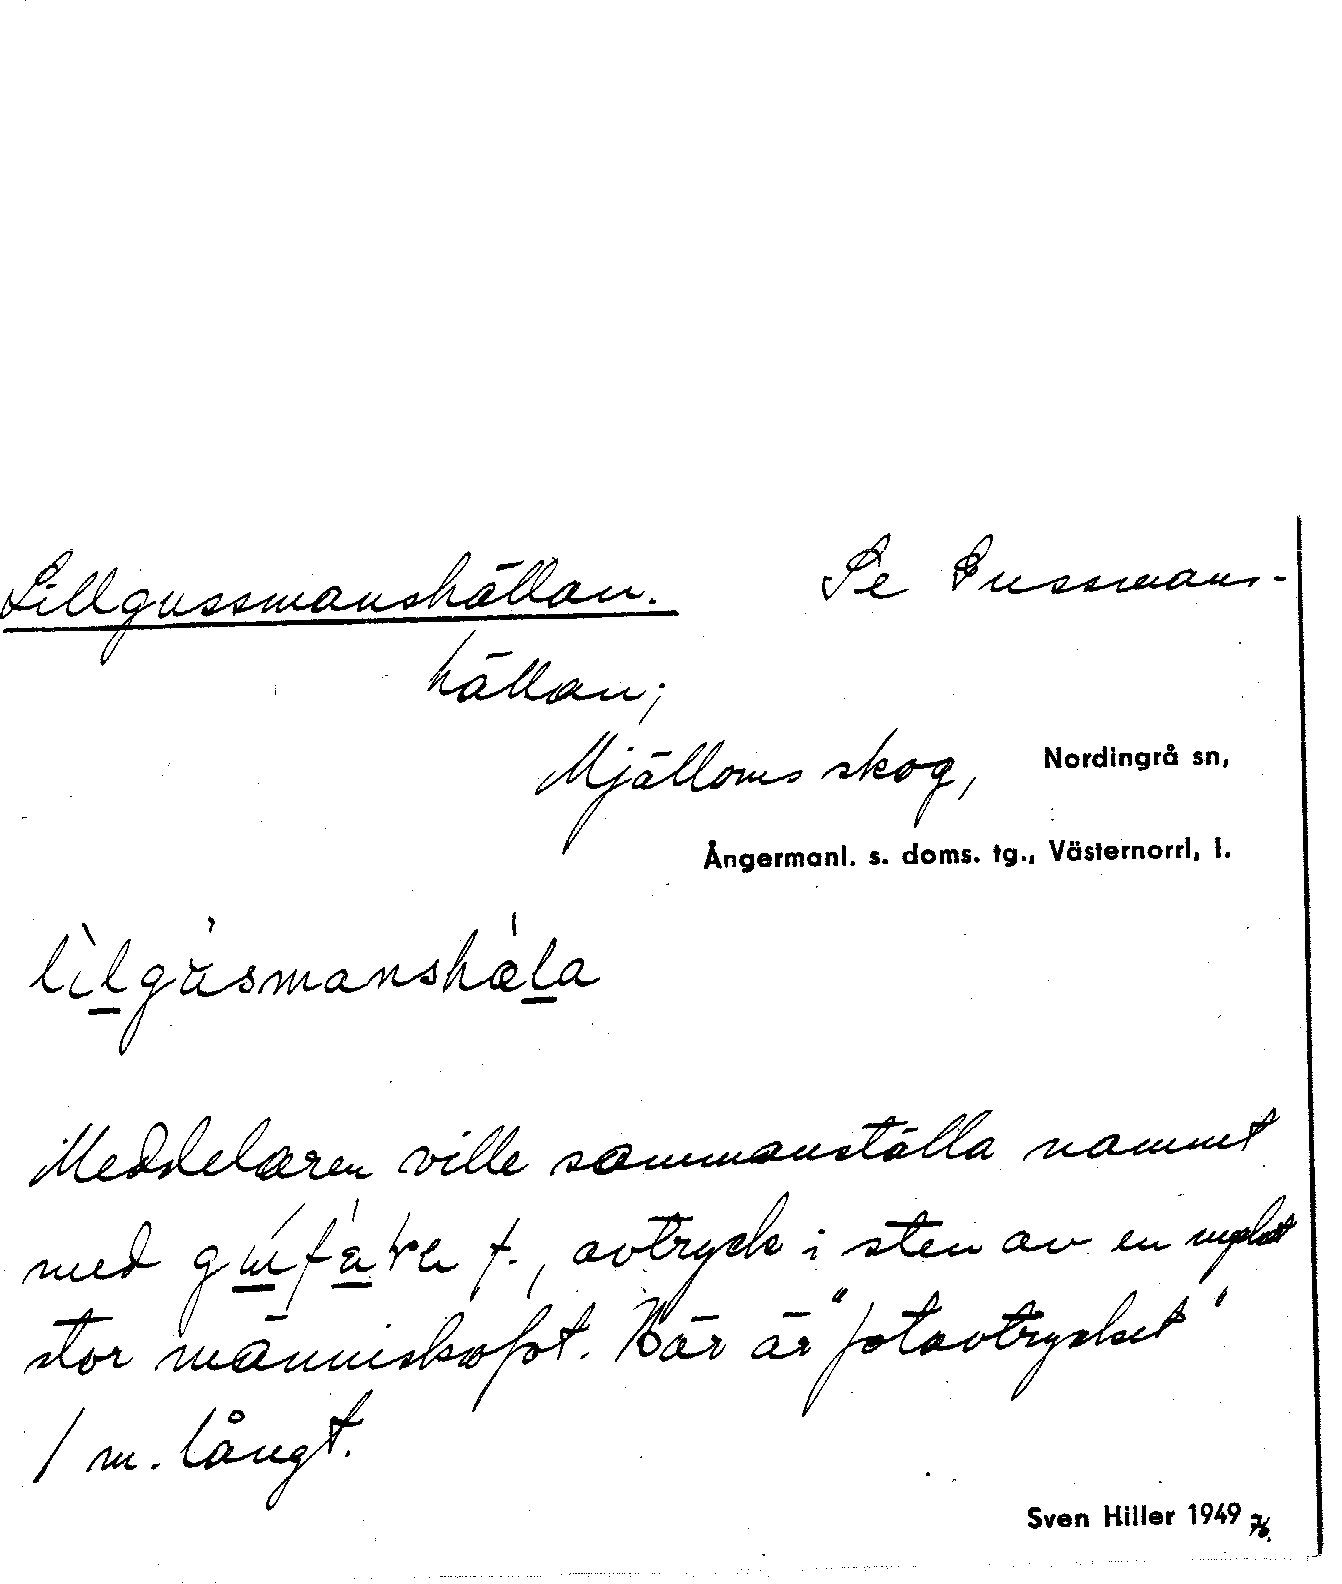 Lillgussmanshällan. Se Gussmans-
hällan;
Mjälloms skog, Nordingrå sn,
Ångermanl. s. doms. tg., Västernorrl. l.
lìlgùsmanshǽla
Meddelaren ville sammanställa namnet
med f., avtryck i sten av en mycket
stor människofot. Här är "fotavtrycket"
1 m. långt.
Sven Hiller 1949